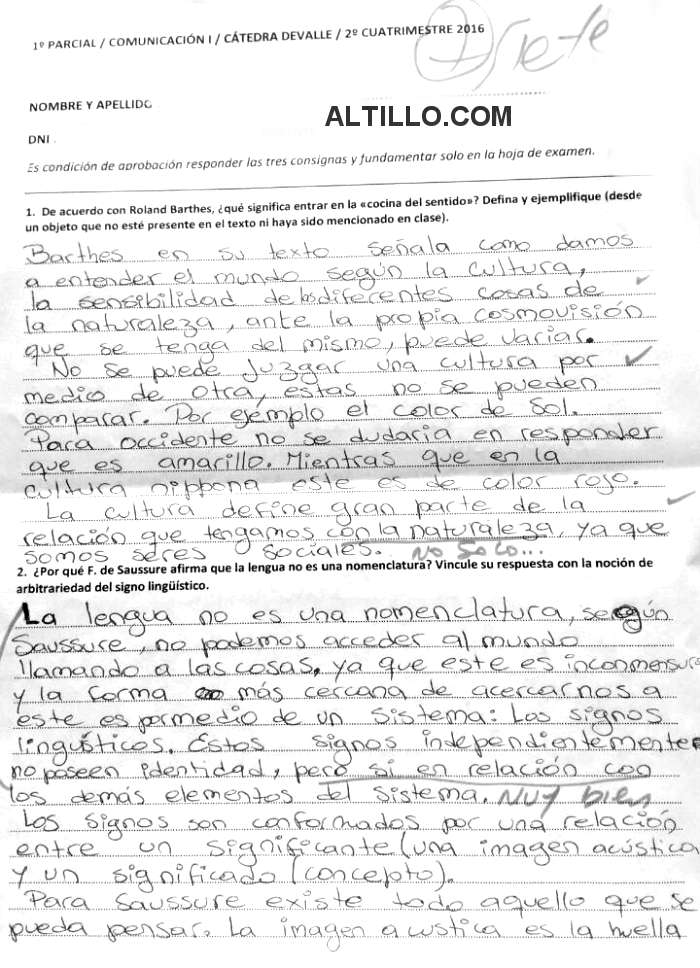 1º PARCIAL / COMUNICACIÓN I / CÁTEDRA DEVALLE / 2º CUATRIMESTRE 2016
7/Siete
NOMBRE Y APELLIDO
ALTILLO.COM
DNI
Es condición de aprobación responder las tres consignas y fundamentar solo en la hoja de examen.
1. De acuerdo con Roland Barthes, ¿qué significa entrar en la «cocina del sentido»? Defina y ejemplifique (desde
un objeto que no esté presente en el texto ni haya sido mencionado en clase).
Barthes en su texto señala como damos
a entender el mundo según la cultura,
la sensibilidad de las diferentes cosas de
la naturaleza, ante la propia cosmovisión
que se tenga del mismo, puede variar.
No se puede juzgar una cultura por
medio de otra, estas no se pueden
comparar. Por ejemplo el color de Sol.
Para occidente no se dudaria en responder
que es amarillo. Mientras que en la
cultura nippona este es de color rojo.
La cultura define gran parte de la
relación que tengamos con la naturaleza, ya que
somos seres sociales. No solo...
2. ¿Por qué F. de Saussure afirma que la lengua no es una nomenclatura? Vincule su respuesta con la noción de
arbitrariedad del signo lingüístico.
La lengua no es una nomenclatura, según
Saussure, no podemos acceder al mundo
llamando a las cosas, ya que este es inconmensura
y la forma más cercana de acercarnos a
este es por medio de un sistema: Los signos
lingüísticos. Estos signos independientemente
no poseen identidad, pero si en relación con
los demás elementos del sistema. Muy bien
Los signos son conformados por una relación
entre un significante (una imagen acústica
y un significado (concepto).
Para Saussure existe todo aquello que se
pueda pensar. La imagen acustica es la huella